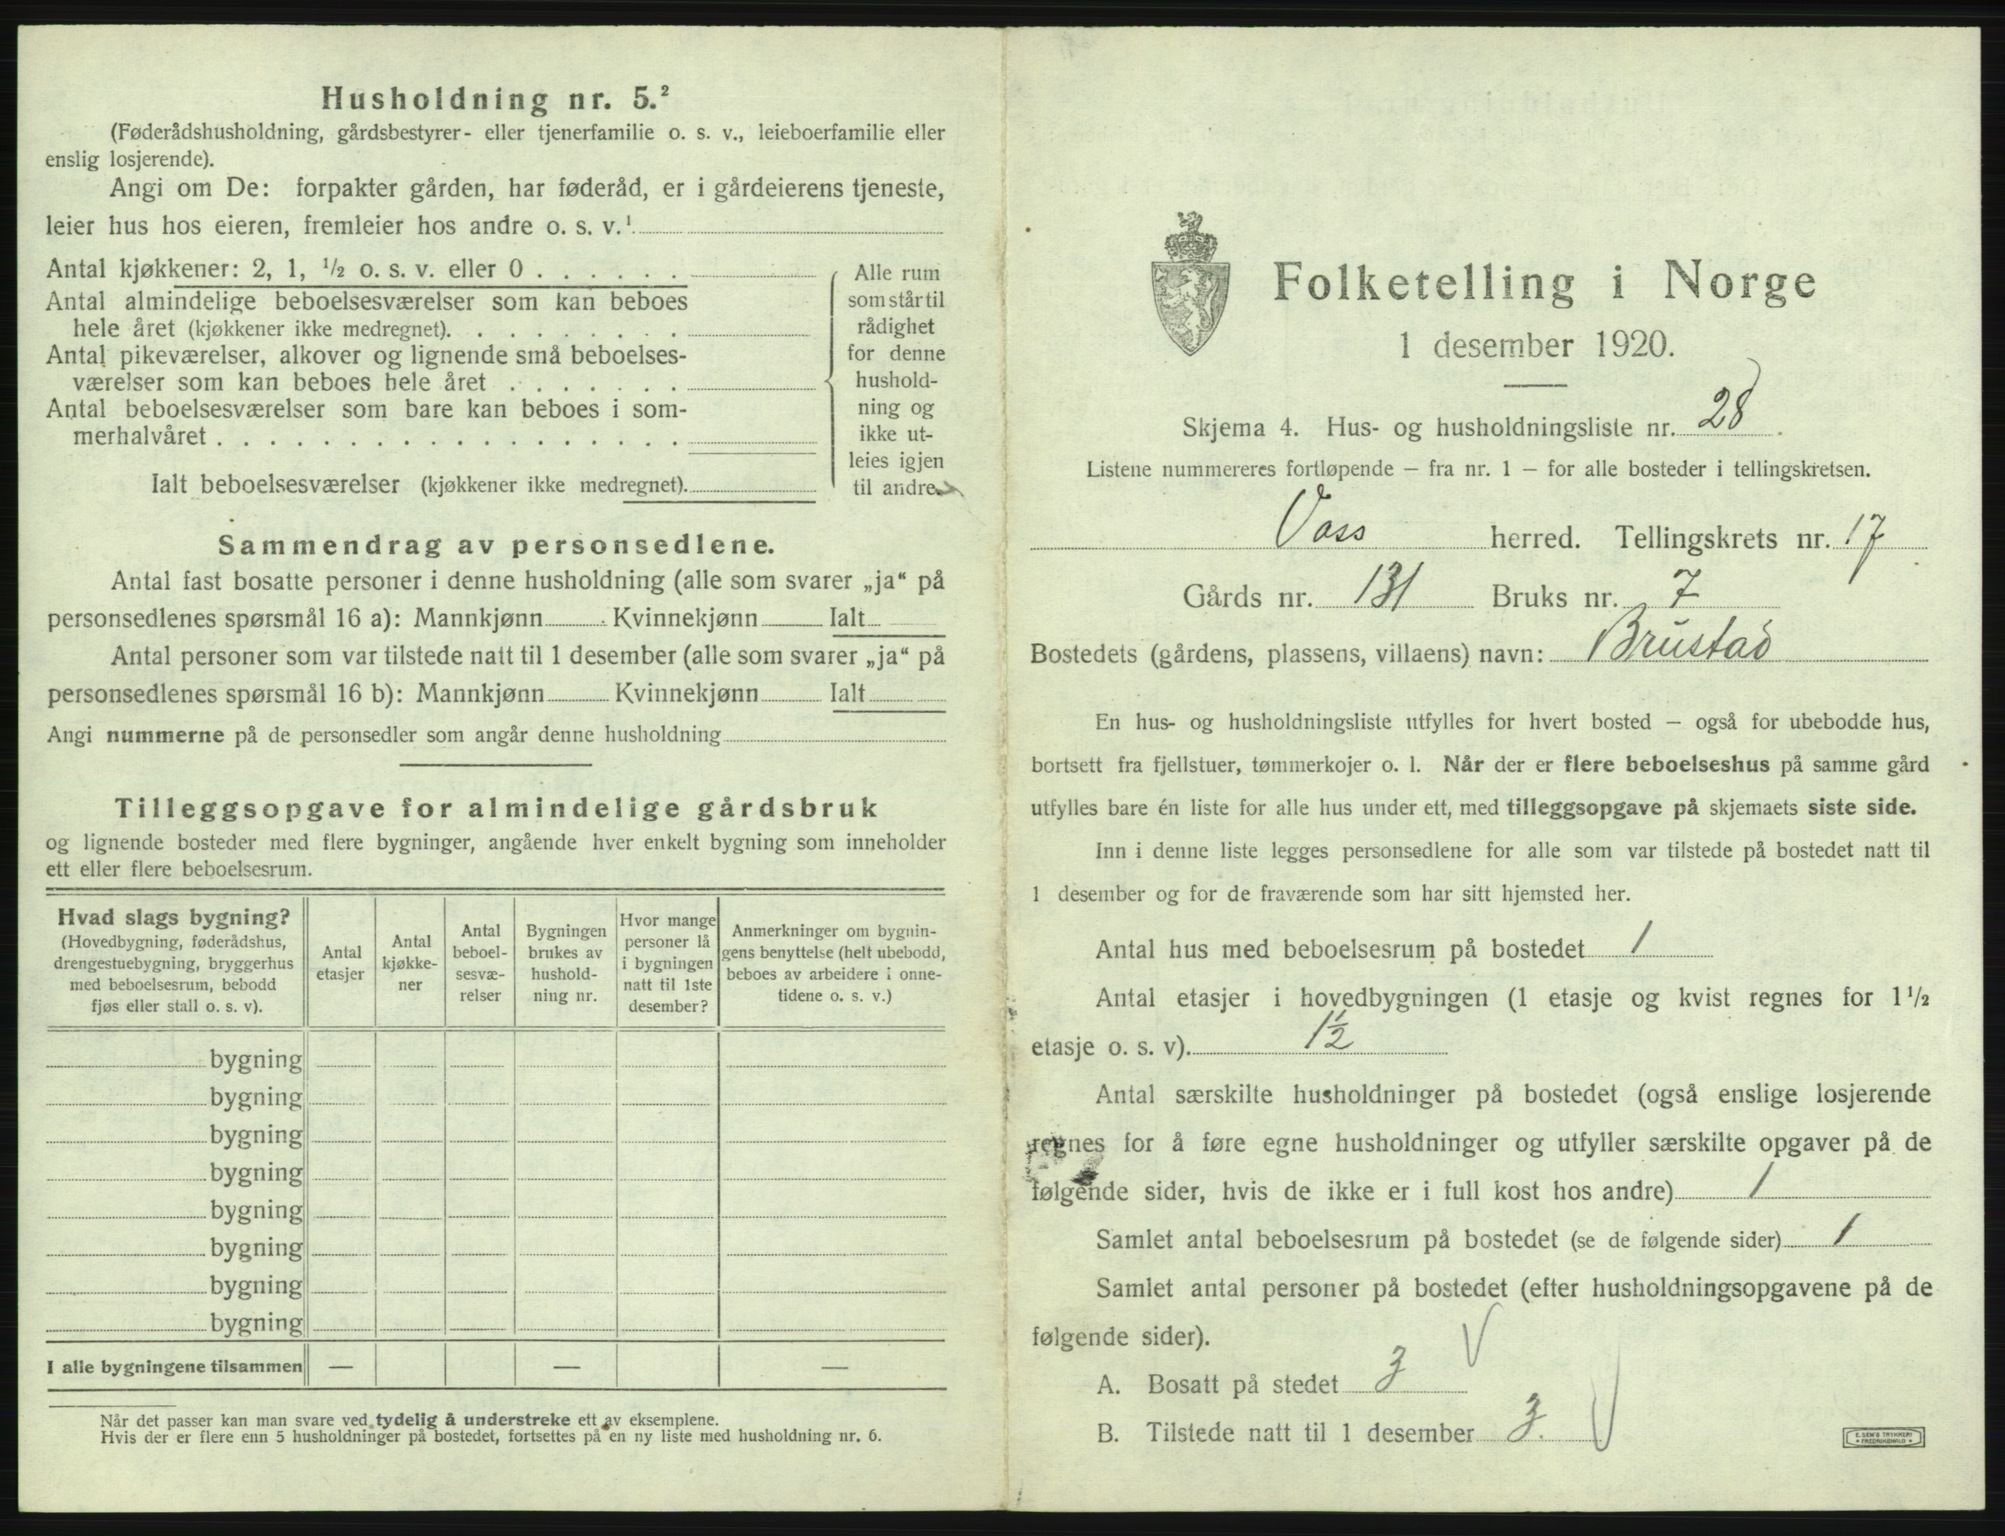 Husholdning nr. 5.²
(Føderådshusholdning, gårdsbestyrer- eller tjenerfamilie o. s. v., leieboerfamilie eller
enslig losjerende).
Angi om De: forpakter gården, har føderåd, er i gårdeierens tjeneste,
leier hus hos eieren, fremleier hos andre o. s. v.¹
Antal kjøkkener: 2, 1, ½ o. s. v. eller 0 . . . . . .
Antal almindelige beboelsesværelser som kan beboes
hele året (kjøkkener ikke medregnet). . . . . . . . .
Antal pikeværelser, alkover og lignende små beboelses-
værelser som kan beboes hele året . . . . . . .
Antal beboelsesværelser som bare kan beboes i som-
merhalvåret . . . . . . . . . . . . . . . . . .
Ialt beboelsesværelser (kjøkkener ikke medregnet).
Alle rum
som står til
rådighet
for denne
hushold-
ning og
ikke ut-
leies igjen
til andre.
Sammendrag av personsedlene.
Antal fast bosatte personer i denne husholdning (alle som svarer „ja“ på
personsedlenes spørsmål 16 a): Mannkjønn Kvinnekjønn Ialt
Antal personer som var tilstede natt til 1 desember (alle som svarer „ja“ på
personsedlenes spørsmål 16 b): Mannkjønn Kvinnekjønn Ialt
Angi nummerne på de personsedler som angår denne husholdning
Tilleggsopgave for almindelige gårdsbruk
og lignende bosteder med flere bygninger, angående hver enkelt bygning som inneholder
ett eller flere beboelsesrum.
Hvad slags bygning?
(Hovedbygning, føderådshus,
drengestuebygning, bryggerhus
med beboelsesrum, bebodd
fjøs eller stall o. s. v).
Antal
etasjer
Antal
kjøkke-
ner
Antal
beboel-
sesvæ-
relser
Bygningen
brukes av
hushold-
ning nr.
Hvor mange
personer lå
i bygningen
natt til 1ste
desember?
Anmerkninger om bygnin-
gens benyttelse (helt ubebodd,
beboes av arbeidere i onne-
tidene o. s. v.)
bygning
bygning
bygning
bygning
bygning
bygning
bygning
bygning
I alle bygningene tilsammen — — —
Når det passer kan man svare ved tydelig å understreke ett av eksemplene.
Hvis der er flere enn 5 husholdninger på bostedet, fortsettes på en ny liste med husholdning nr. 6.
Folketelling i Norge
1 desember 1920.
Skjema 4. Hus- og husholdningsliste nr. 28.
Listene nummereres fortløpende — fra nr. 1 — for alle bosteder i tellingskretsen.
Voss herred. Tellingskrets nr. 17
Gårds nr. 131 Bruks nr. 7
Bostedets (gårdens, plassens, villaens) navn: Brustad
En hus- og husholdningsliste utfylles for hvert bosted — også for ubebodde hus,
bortsett fra fjellstuer, tømmerkojer o. l. Når der er flere beboelseshus på samme gård
utfylles bare én liste for alle hus under ett, med tilleggsopgave på skjemaets siste side.
Inn i denne liste legges personsedlene for alle som var tilstede på bostedet natt til
1 desember og for de fraværende som har sitt hjemsted her.
Antal hus med beboelsesrum på bostedet 1
Antal etasjer i hovedbygningen (1 etasje og kvist regnes for 1½
etasje o. s. v). 1½
Antal særskilte husholdninger på bostedet (også enslige losjerende
regnes for å føre egne husholdninger og utfyller særskilte opgaver på de
følgende sider, hvis de ikke er i full kost hos andre) 1
Samlet antal beboelsesrum på bostedet (se de følgende sider) 1
Samlet antal personer på bostedet (efter husholdningsopgavene på de
følgende sider).
A. Bosatt på stedet 3
B. Tilstede natt til 1 desember 3.
E. SEM'S TRYKKERI
FREDRIKSHALD